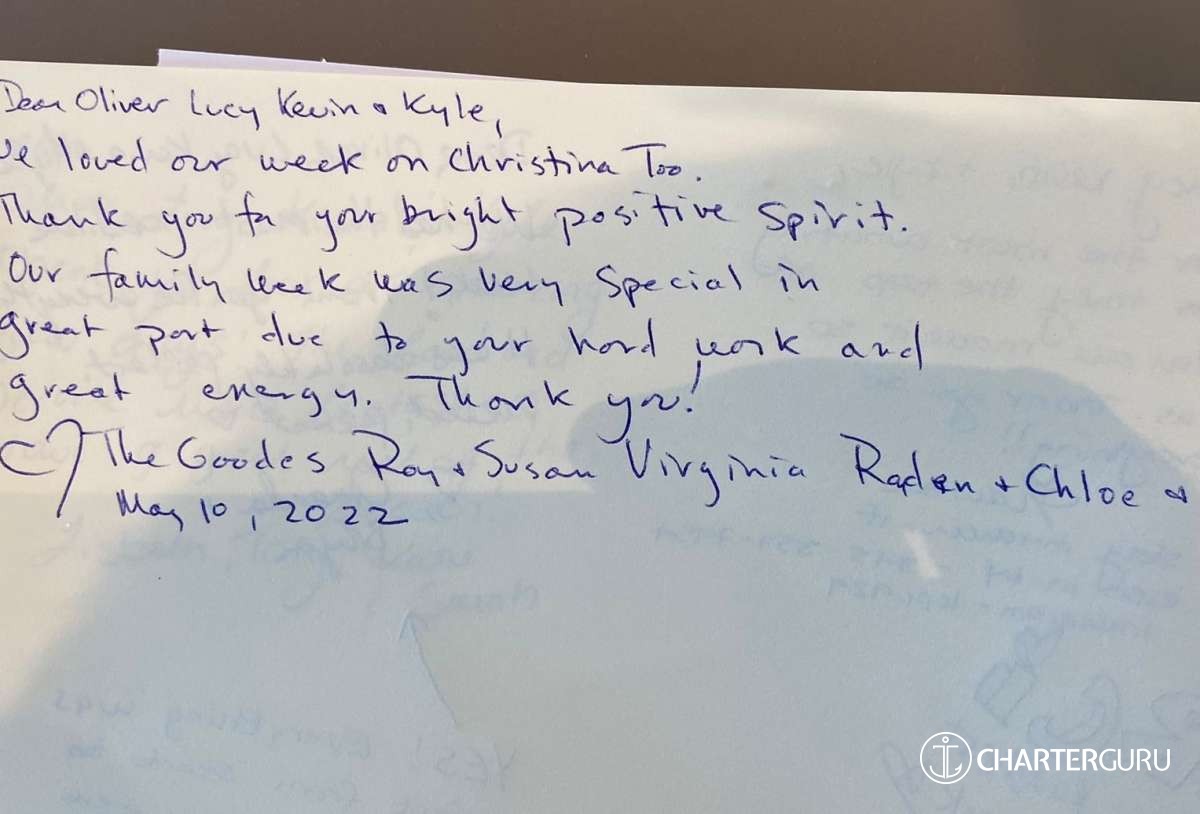 Dear Oliver Lucy Kevin + Kyle,
We loved our week on Christina Too.
Thank you for your bright positive spirit.
Our family week was very special in
great part due to your hard work and
great energy. Thank you!
The Goodes Roy + Susan Virginia + Chloe +
May 10, 2022
CHARTERGURU